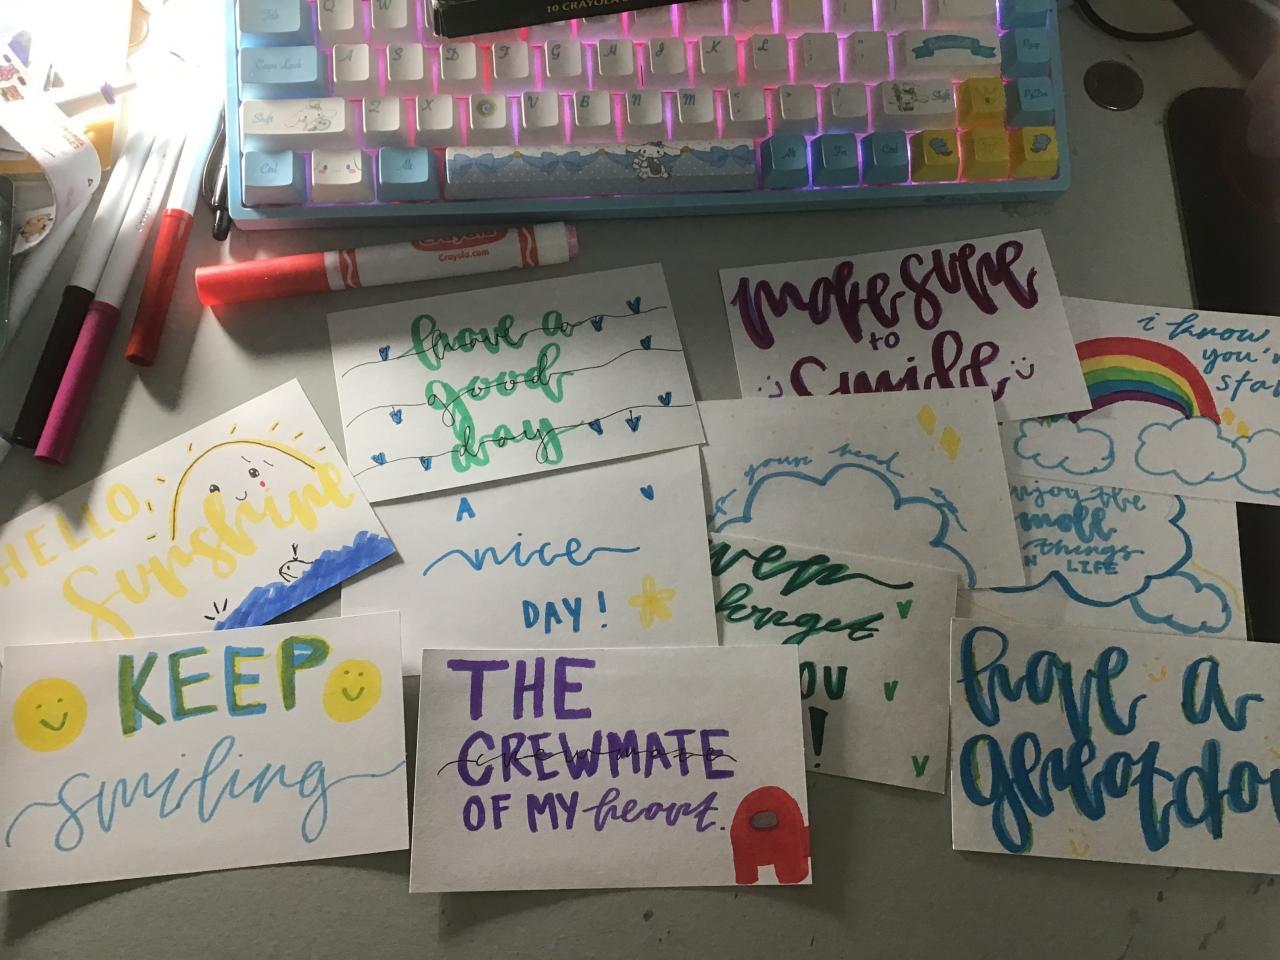 10 CRAYOLA
Tab
Q
W
Caps Lock
A
S
D
F
G
H
J
K
L
Shift
Z
X
V
B
N
M
Shift
PgDn
Ctrl
Alt
Alt
Fn
Ctrl
Crayola
Crayola.com
have a
good
day
make sure
to
smile
i know
you'r
star
HELLO,
Sunshine
A
nice
DAY!
your head
never
forget
YOU
!
enjoy the
small
things
IN LIFE
KEEP
smiling
THE
CREWMATE
crewmate
OF MY heart.
have a
great day